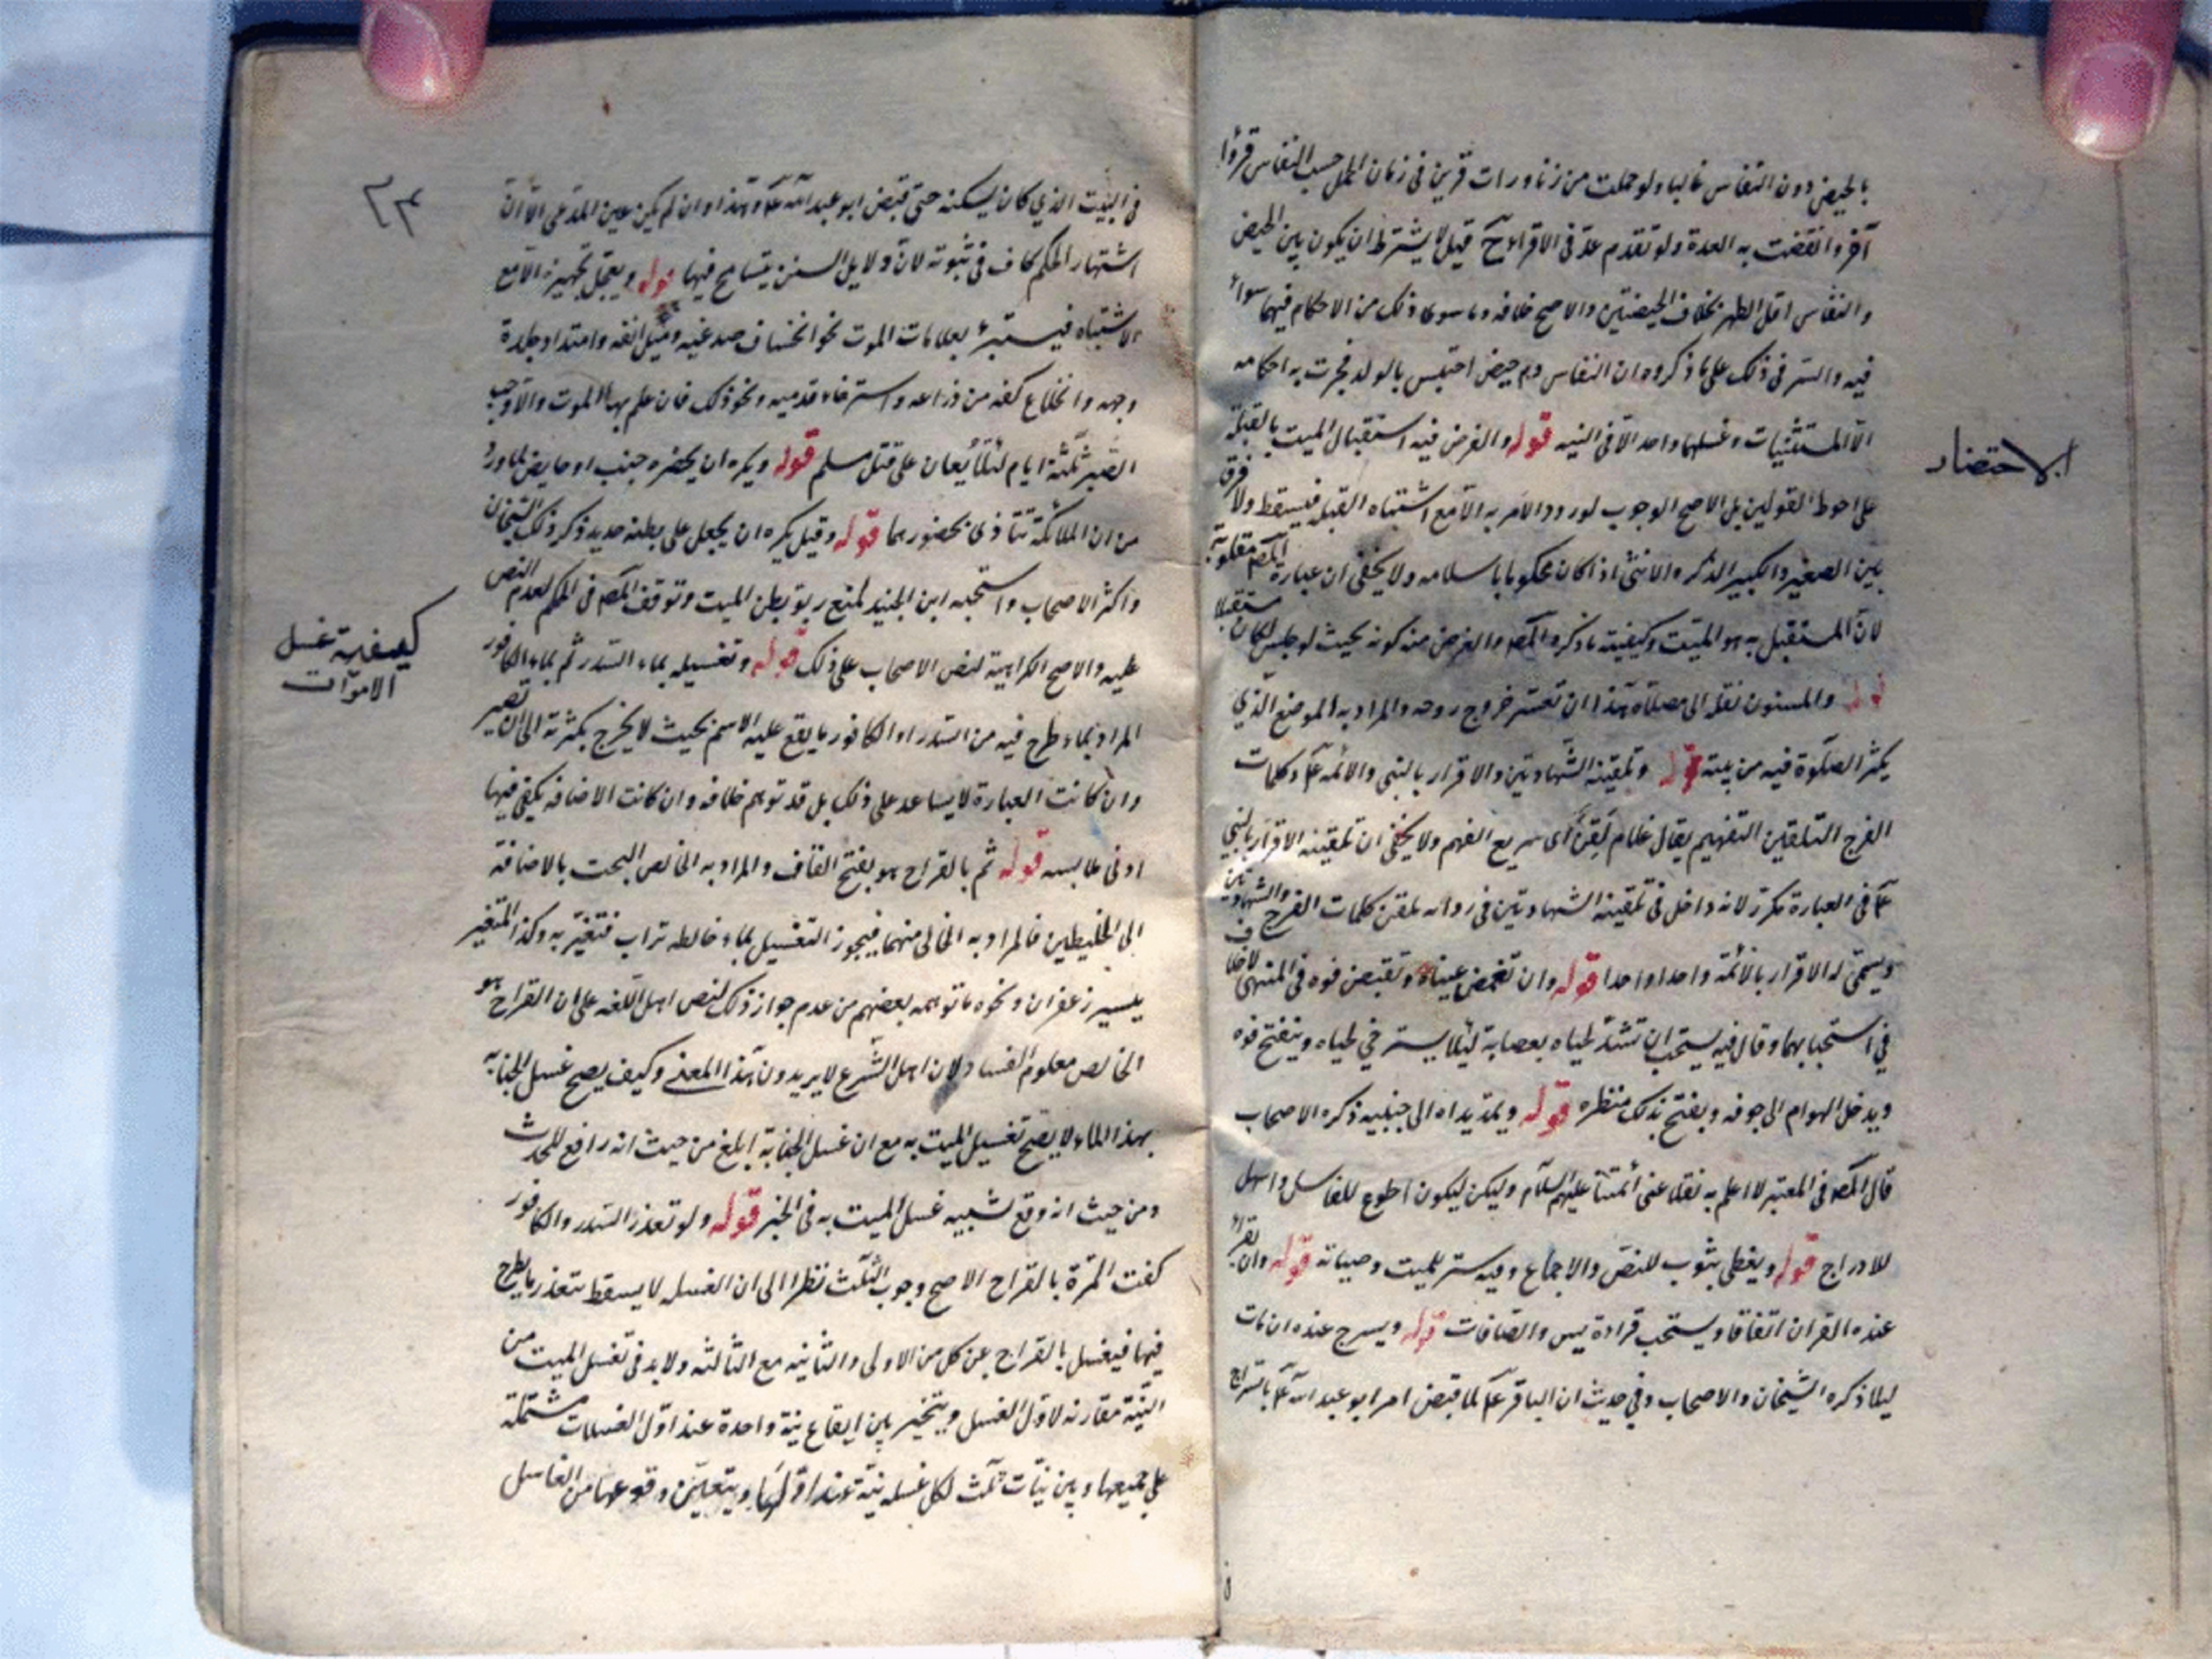 بالحيض دون النفاس غالبا ولو حملت من زنا ورات قرئين في زمان الحمل حسب النفاس قرؤا
آخر وانقضت به العدة ولو تقدم عد في الاقراء ح قيل لا يشترط ان يكون بين الحيض
والنفاس اقل الطهر بخلاف الحيضتين والاصح خلافه وما سوى ذلك من الاحكام فيهما سواء
فيه والسر في ذلك على ما ذكروه ان النفاس دم حيض احتبس بالولد فجرت به احكامه
الا المستثنيات وغسلهما واحد الا في النيه قوله والفرض فيه استقبال الميت بالقبلة
الاحتضار
على احوط القولين بل الاصح الوجوب لورود الامر به الا مع اشتباه القبله فيسقط ولا فرق
بين الصغير والكبير الذكر والانثى اذا كان محكوما باسلامه ولا يخفى ان عبارة المص مقلوبة
لان المستقبل به هو الميت وكيفيته ما ذكره المص والغرض منه كونه بحيث لو جلس لكان مستقبلا
قوله والمسنون نقله الى مصلاه هذا ان تعسر خروج روحه والمراد به الموضع الذي
يكثر الصلوة فيه من بيته قوله وتلقينه الشهادتين والاقرار بالنبي والائمه ع وكلمات
الفرج التلقين التفهيم يقال غلام لقن أى سريع الفهم ولا يخفى ان تلقينه الاقرار بالنبي
ع في العبارة مكرر لانه داخل في تلقينه الشهادتين في روايه تلقن كلمات الفرج والشهادتين
ويسمى له الاقرار بالائمة واحدا واحدا قوله وان تغمض عيناه وتقبض فوه في المنتهى لا خلاف
في استحبابهما وقال فيه يستحب ان تشد لحياه بعصابة لئلا يسترخي لحياه وينفتح فوه
ويدخل الهوام الى جوفه ويقبح بذلك منظره قوله ويمد يداه الى جنبيه ذكره الاصحاب
قال المص في المعتبر لا اعلم به نقلا عن أئمتنا عليهم السلام وليكن ليكون اطوع للغاسل واسهل
للادراج قوله ويغطى بثوب للنص والاجماع وفيه ستر للميت وصيانة قوله وان يقرأ
عنده القران اتفاقا ويستحب قراءة يس والصافات قوله ويسرج عنده ان مات
ليلا ذكره الشيخان والاصحاب وفي حديث ان الباقر ع لما قبض امر ابو عبد الله ع بالسراج
في البيت الذي كان يسكنه حتى قبض ابو عبد الله ع وهذا وان لم يكن عين المدعى الا ان
اشتهار الحكم كاف في ثبوته لان دلايل السنن يتسامح فيها قوله ويعجل تجهيزه الا مع
الاشتباه فيستبرء بعلامات الموت نحو انخساف صدغيه وميل انفه وامتداد جلدة
وجهه وانخلاع كفه من ذراعه واسترخاء قدميه ونحو ذلك فان علم بها الموت والا وجب
الصبر ثلثة ايام لئلا يعان على قتل مسلم قوله ويكره ان يحضره جنب او حايض لما ورد
من ان الملائكة تتأذى بحضورهما قوله وقيل يكره ان يجعل على بطنه حديد ذكر ذلك الشيخان
واكثر الاصحاب واستحبه ابن الجنيد لمنع ربو بطن الميت وتوقف المص في الحكم لعدم النص
عليه والاصح الكراهية لنص الاصحاب على ذلك قوله وتغسيله بماء السدر ثم بماء الكافور
كيفية غسل
الاموات
المراد بماء طرح فيه من السدر او الكافور ما يقع عليه الاسم بحيث لا يخرج بكثرته الى ان يصير
وان كانت العبارة لا يساعد على ذلك بل قد توهم خلافه وان كانت الاضافه يكفي فيها
ادنى ملابسه قوله ثم بالقراح هو بفتح القاف والمراد به الخالص البحت بالاضافة
الى الخليطين فالمراد به الخالى منهما فيجوز التغسيل بماء خالطه تراب فتغير به وكذا المتغير
بيسير زعفران ونحوه ما توهمه بعضهم من عدم جواز ذلك لنص اهل اللغه على ان القراح هو
الخالص معلوم الفساد لان اهل الشرع لا يريدون هذا المعنى وكيف يصح غسل الجنابه
بهذا الماء ولا يصح تغسيل الميت به مع ان غسل الجنابة ابلغ من حيث انه رافع للحدث
ومن حيث انه وقع تشبيه غسل الميت به في الخبر قوله ولو تعذر السدر والكافور
كفت المرة بالقراح الاصح وجوب الثلث نظرا الى ان الغسله لا يسقط بتعذر ما يطرح
فيها فيغسل بالقراح عن كل من الاولى والثانيه مع الثالثه ولا بد في تغسيل الميت من
النية مقارنه لاول الغسل ويتخير بين ايقاع نية واحدة عند اول الغسلات مشتملة
على جميعها وبين نيات ثلث لكل غسله نية عند اولها ويتعين وقوعها من الغاسل